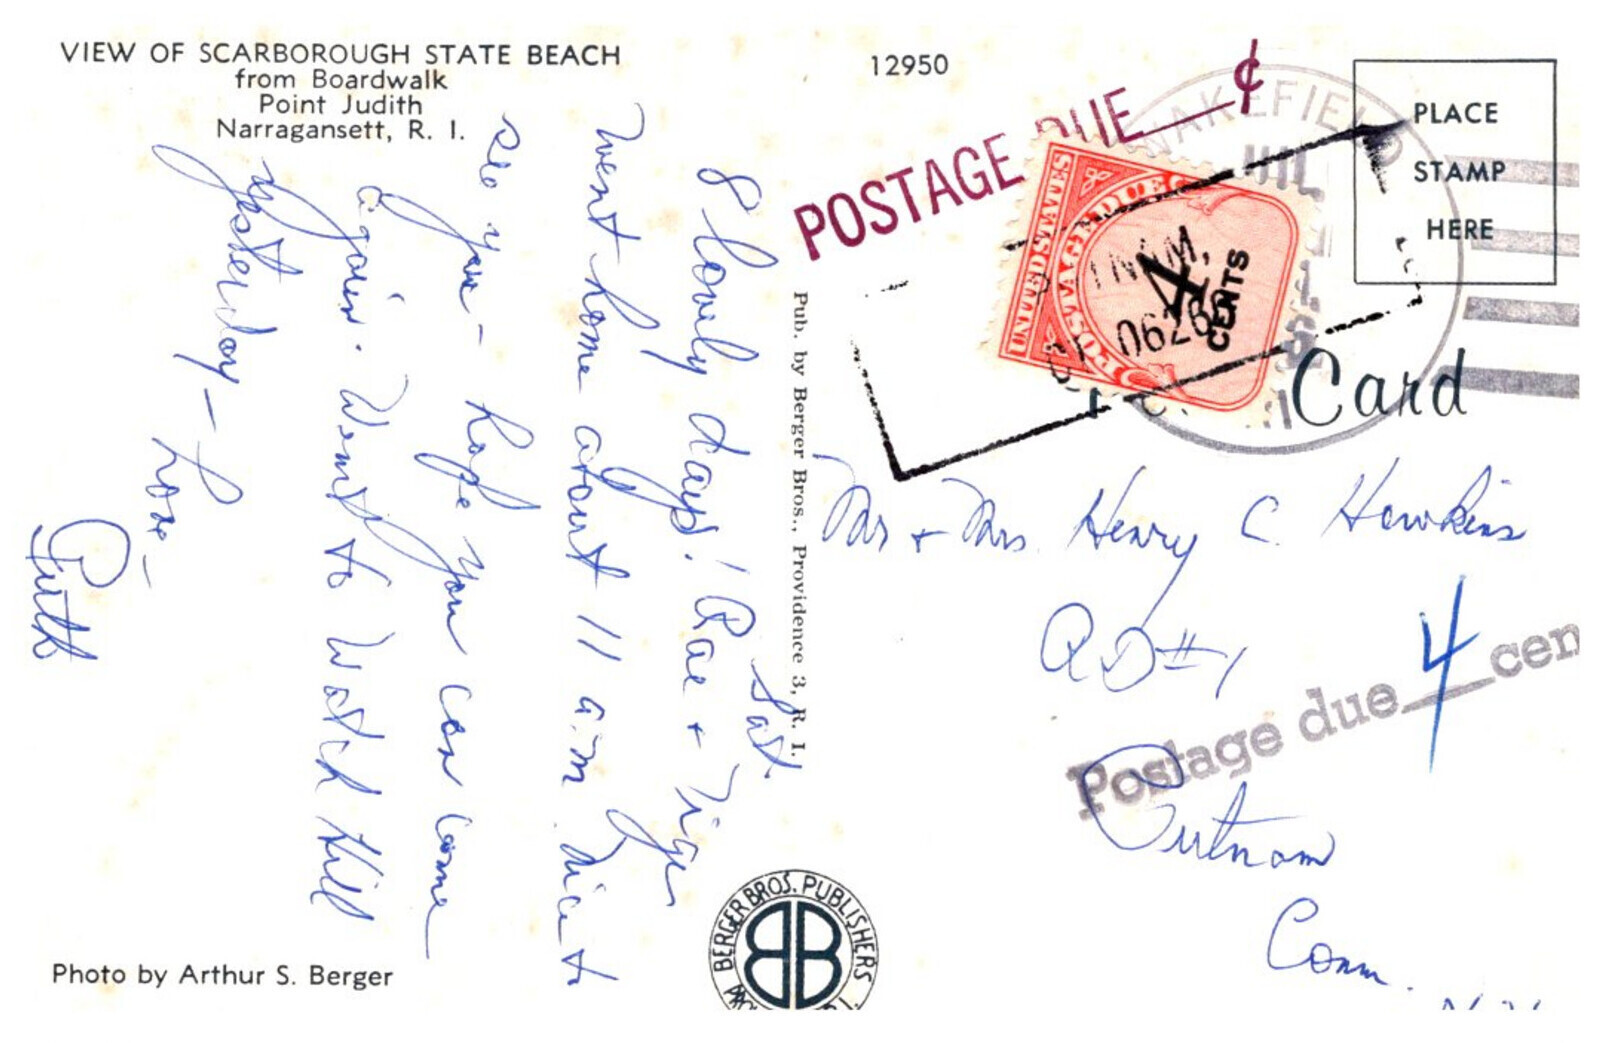 VIEW OF SCARBOROUGH STATE BEACH
from Boardwalk
Point Judith
Narragansett, R. I.
12950
Sat
8 lovely days! Rae + Tiger
went home about 11 a.m. Nice to
see you - hope you can come
again. Went to Watch Hill
yesterday - Love -
Ruth
Photo by Arthur S. Berger
Pub. by Berger Bros., Providence 3, R. I.
BERGER BROS. PUBLISHERS
POSTAGE DUE ¢
WAKEFIELD
UNITED STATES
POSTAGE DUE
4
CENTS
PLACE
STAMP
HERE
Card
Mr + Mrs. Henry C. Hawkins
RD #1
Postage due 4 cen
Putnam
Conn.